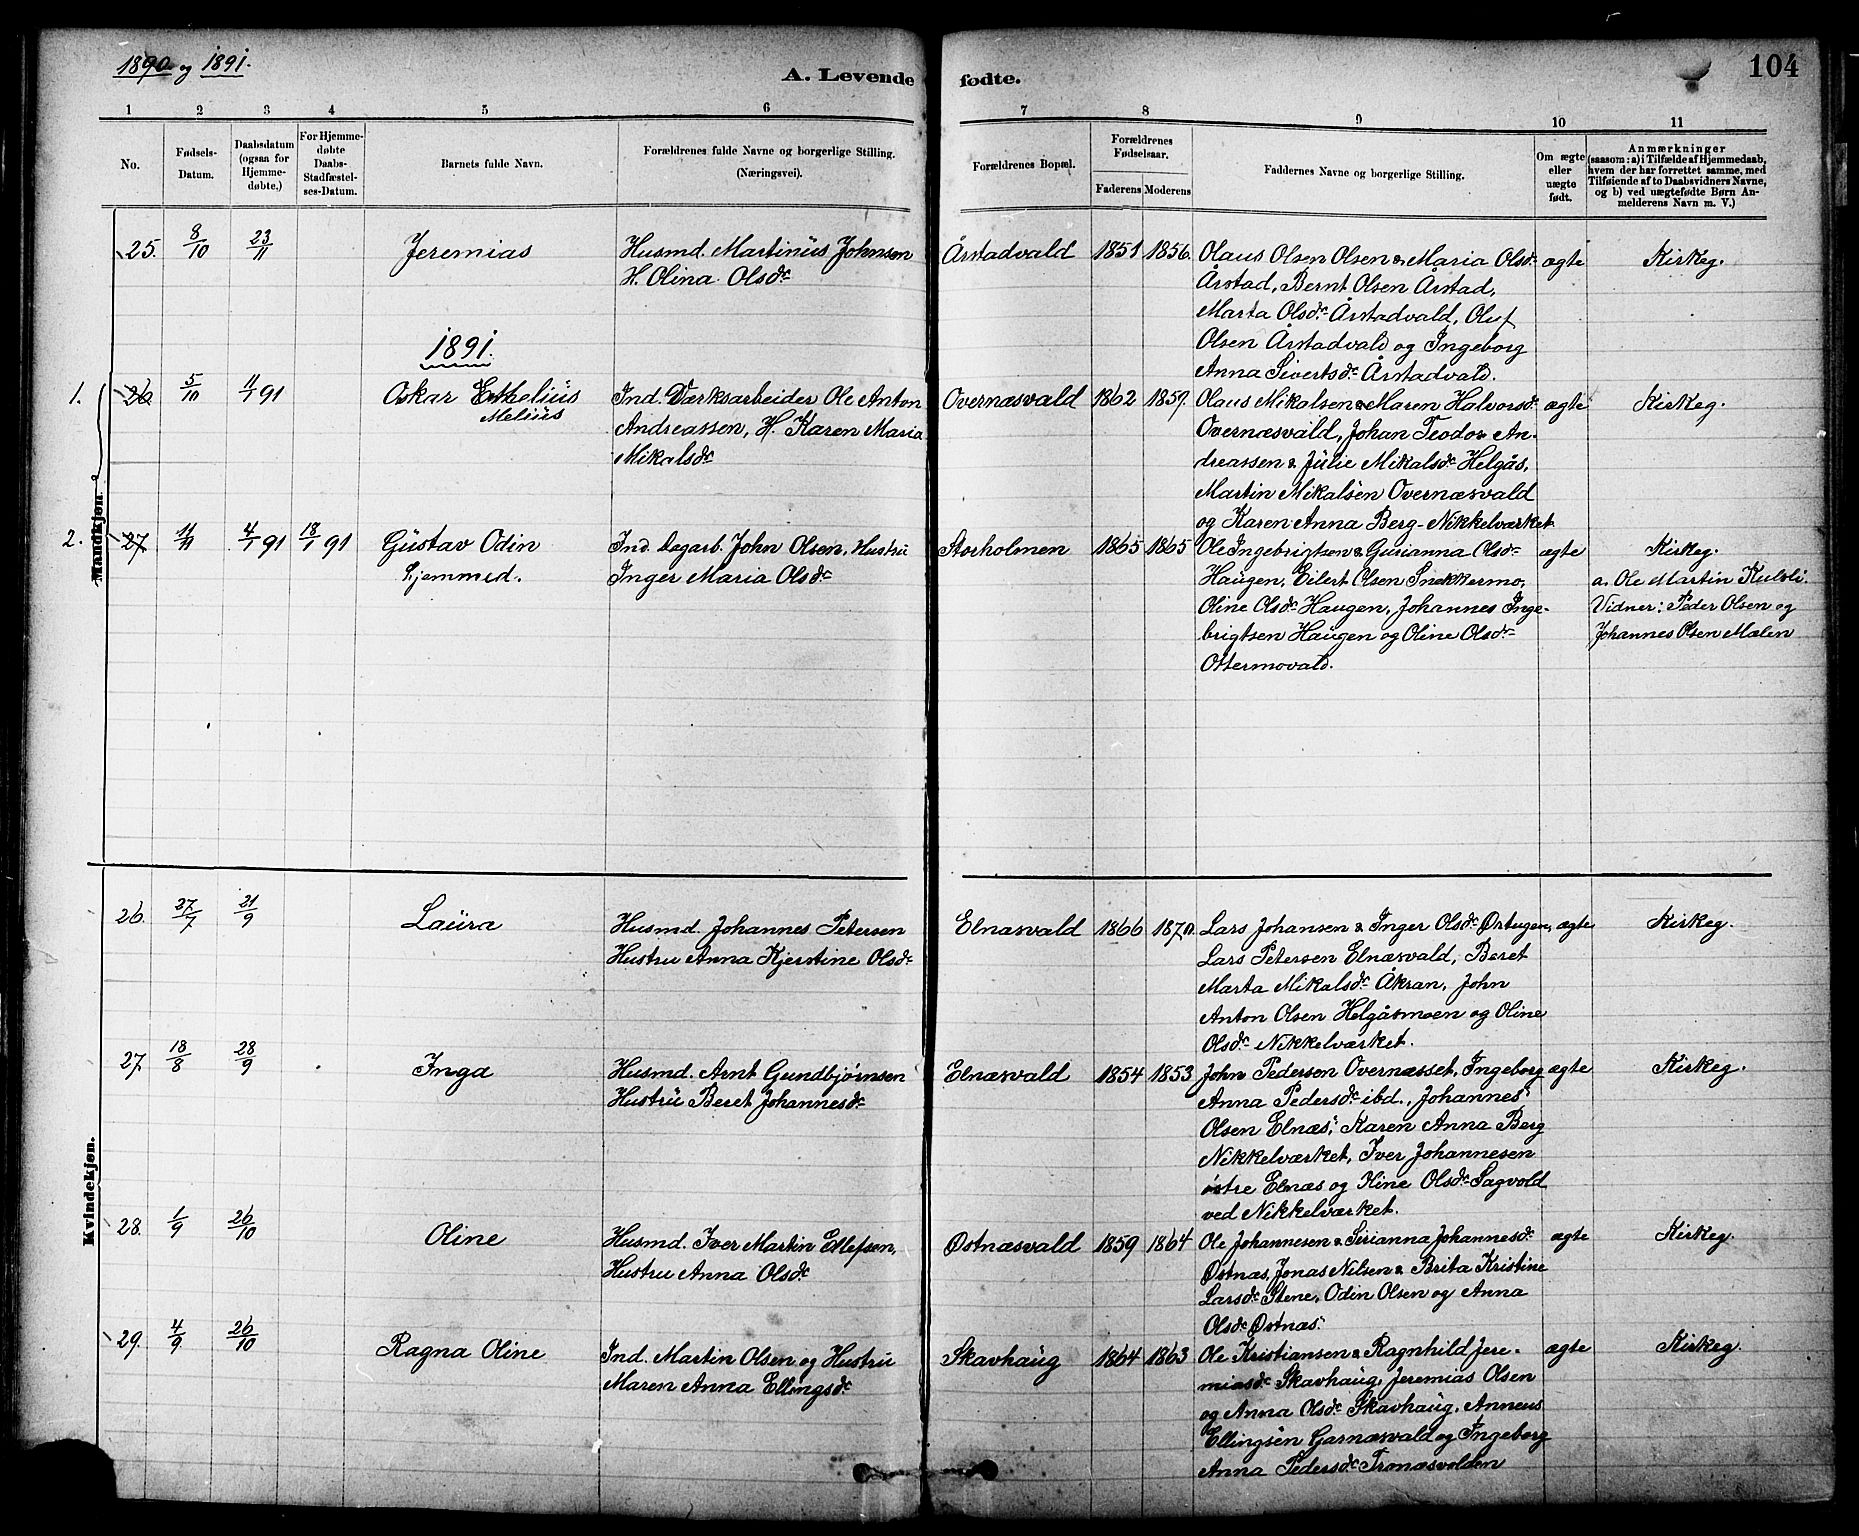 1890 og 1891.
A. Levende fødte.
104
1 2 3 4 5 6 7 8 9 10 11
No.
Fødsels-
Datum.
Daabsdatum
(ogsaa for
Hjemme-
døbte.)
For Hjemme-
døbte
Daabs-
Stadfæstel-
ses-Datum.
Barnets fulde Navn.
Forældrenes fulde Navne og borgerlige Stilling.
(Næringsvei).
Forældrenes Bopæl.
Forældrenes
Fødselsaar.
Faderens Moderens
Faddernes Navne og borgerlige Stilling.
Om ægte
eller
uægte
født.
Anmærkninger
(saasom: a) i Tilfælde af Hjemmedaab,
hvem der har forrettet samme, med
Tilføiende af to Daabsvidners Navne,
og b) ved uægtefødte Børn An-
melderens Navn m. V.)
Mandkjøn.
25. 8/10 23/11 Jeremias Husmd. Martinus Johnsen Årstadvald 1851 1856. Olaus Olsen Olsen & Maria Olsdr ægte Kirkeg.
H. Olina Olsdr Årstad, Bernt Olsen Årstad,
Marta Olsdr Årstadvald, Oluf
Olsen Årstadvald og Ingeborg
Anna Sivertsdr Årstadvald.
1891.
1. 26. 5/10 11/1 91 Oskar Enhelius Ind. Værksarbeider Ole Anton Overnæsvald 1862 1859. Olaus Mikalsen & Maren Halvorsdr ægte Kirkeg.
Melius
Andreassen, H. Karen Maria Overnæsvald, Johan Teodor An-
Mikalsdr dreassen & Julie Mikalsdr Helgås,
Martin Mikalsen Overnæsvald
og Karen Anna Berg-Nikkelværket
2. 27 14/11 4/1 91 18/1 91 Gustav Odin Ind. Dagarb. John Olsen, Hustru Storholmen 1865 1865 Ole Ingebrigtsen & Gurianna Olsdr ægte Kirkeg.
hjemmed. Inger Maria Olsdr Haugen, Eilert Olsen Snekkermo, a. Ole Martin Kulsli.
Oline Olsdr Haugen, Johannes Inge- Vidner: Peder Olsen og
brigtsen Haugen og Oline Olsdr Johannes Olsen Malen
Ostermovald.
Kvindekjøn.
26. 27/7 21/9 Laura Husmd. Johannes Petersen Elnæsvald 1866 1870. Lars Johansen & Inger Olsdr Ørtugen, ægte Kirkeg.
Hustru Anna Kjerstine Olsdr Lars Petersen Elnæsvald, Beret
Marta Mikalsdr Åkran, John
Anton Olsen Helgåsmoen og Oline
Olsdr Nikkelværket.
27. 18/8 28/9 Inga Husmd. Arnt Gundbjørnsen Elnæsvald 1854 1853 John Pederson Overnæsset, Ingeborg ægte Kirkeg.
Hustru Beret Johannesdr Anna Pedersdr ibd., Johannes
Olsen Elnæs, Karen Anna Berg
Nikkelværket, Iver Johannesen
østre Elnæs og Oline Olsdr Sagvold
ved Nikkelværket.
28. 1/9 26/10 Oline Husmd. Iver Martin Ellefsen, Østnæsvald 1859 1864 Ole Johannesen & Sirianna Johannesdr ægte Kirkeg.
Hustru Anna Olsdr Østnæs, Jonas Nilsen & Brita Kristine
Larsdr Stene, Odin Olsen og Anna
Olsdr Østnæs.
29. 4/9 26/10 Ragna Oline Ind. Martin Olsen og Hustru Skavhaug 1864 1863 Ole Kristiansen & Ragnhild Jere- ægte Kirkeg.
Maren Anna Ellingsdr miasdr Skavhaug, Jeremias Olsen
og Anna Olsdr Skavhaug, Anneus
Ellingsen Garnæsvald og Ingeborg
Anna Pedersdr Tronæsvolden